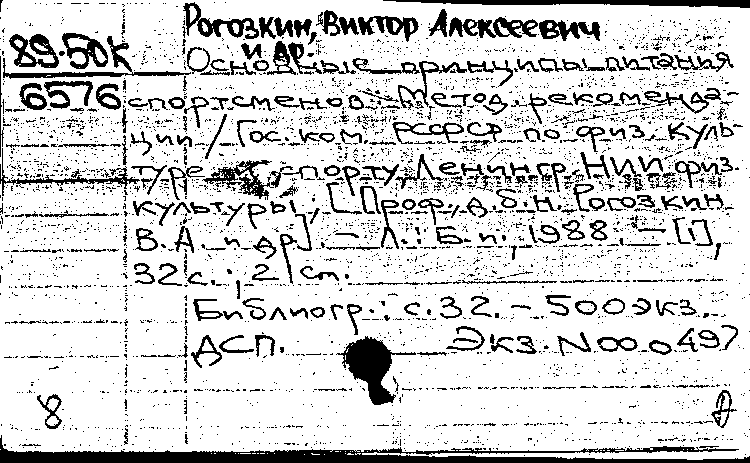 Рогозкин, Виктор Алексеевич
и др.
89-50К
Основные принципы питания
6576
спортсменов: Метод. рекоменда-
ции / Гос. ком. РСФСР по физ. куль-
туре и спорту, Ленингр. НИИ физ.
культуры; [Проф., д.б.н. Рогозкин
В.А. и др]. - Л.: Б.и., 1988. - [1],
32с.; 21 см.
Библиогр.: с.32. - 500 экз.
ДСП. Экз. N 000497
8